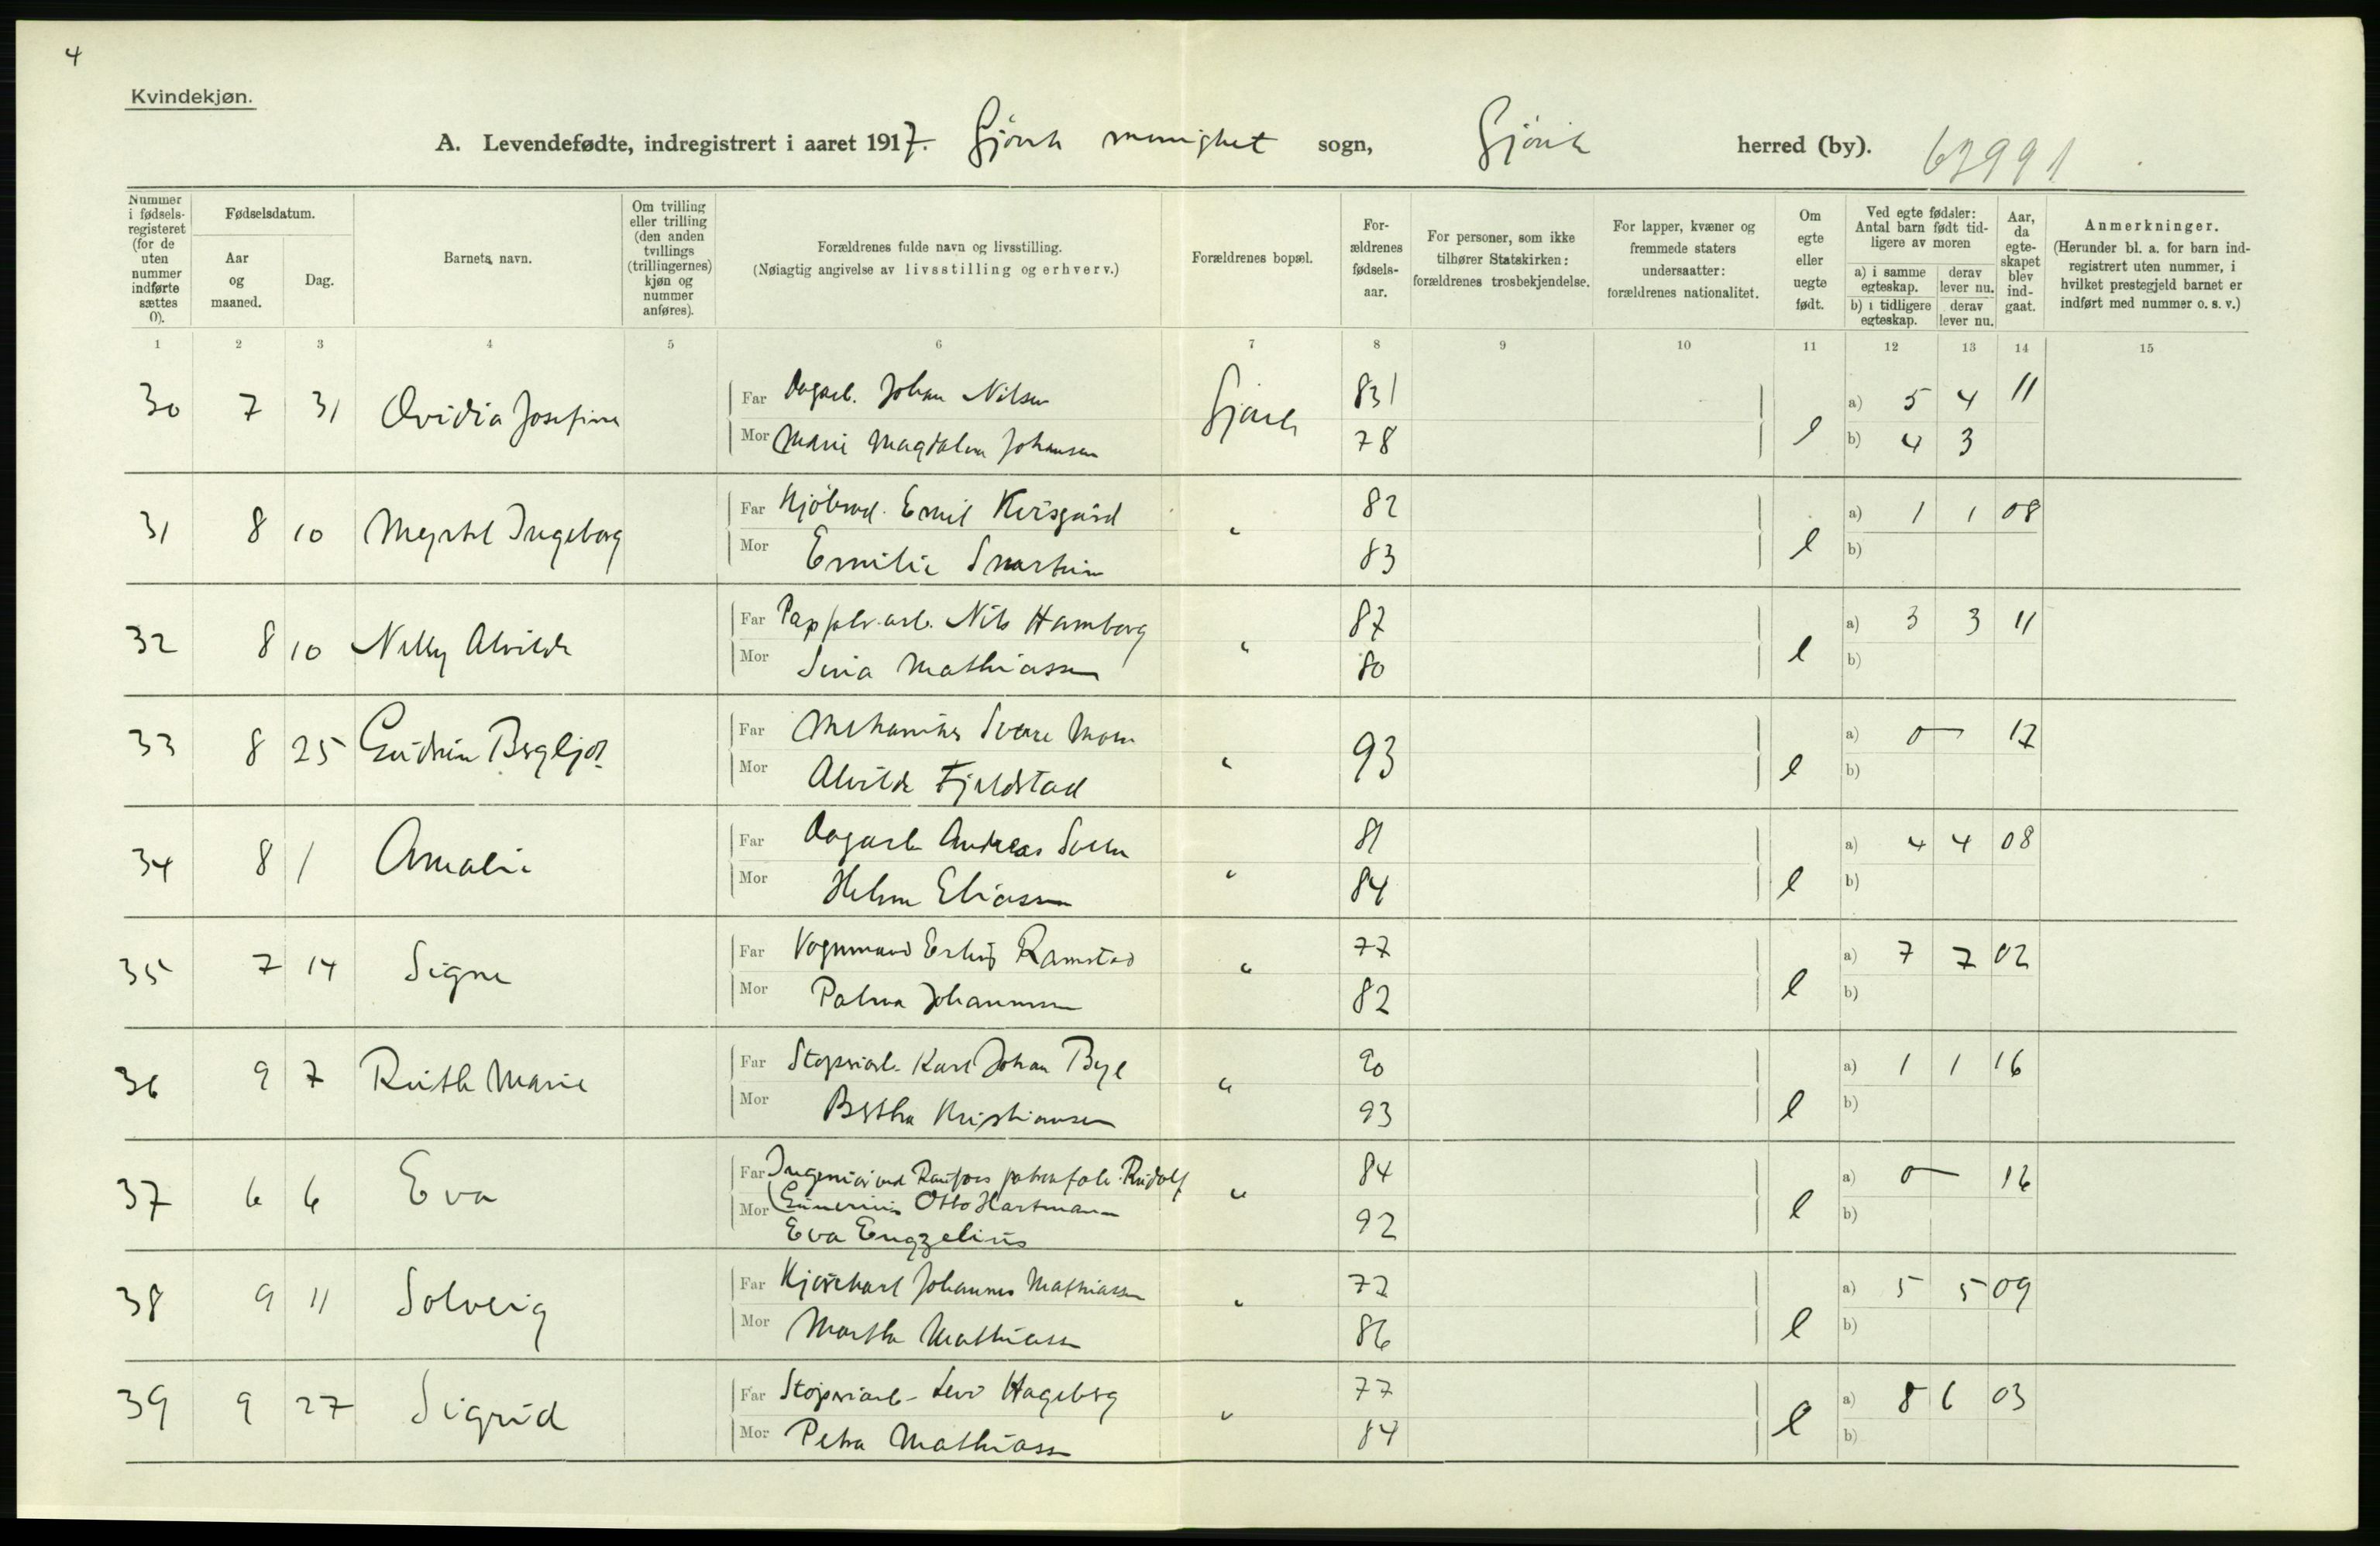 4
Kvindekjøn.
A. Levendefødte, indregistrert i aaret 1917. Gjövik menighet sogn, Gjövik herred (by). 63991
Nummer i fødsels-registeret (for de uten nummer indførte sættes 0).
Fødselsdatum.
Aar og maaned.
Dag.
Barnets navn.
Om tvilling eller trilling (den anden tvillings (trillingernes) kjøn og nummer anføres).
Forældrenes fulde navn og livsstilling.
(Nøiagtig angivelse av livsstilling og erhverv.)
Forældrenes bopæl.
For-ældrenes fødsels-aar.
For personer, som ikke tilhører Statskirken: forældrenes trosbekjendelse.
For lapper, kvæner og fremmede staters undersaatter: forældrenes nationalitet.
Om egte eller uegte født.
Ved egte fødsler: Antal barn født tid-ligere av moren
a) i samme egteskap.
derav lever nu.
b) i tidligere egteskap.
derav lever nu.
Aar, da egte-skapet blev ind-gaat.
Anmerkninger.
(Herunder bl. a. for barn ind-registrert uten nummer, i hvilket prestegjeld barnet er indført med nummer o. s. v.)
1 2 3 4 5 6 7 8 9 10 11 12 13 14 15
30 7 31 Ovidia Josefine Far Dagarb. Johan Nilsen Gjövik 83 a) 5 4 11
Mor Marie Magdalena Johansen 78 e b) 4 3
31 8 10 Myrtel Ingeborg Far Emil 82 a) 1 1 08
Mor Emilie 83 e b)
32 8 10 Nelly Alvilde Far Nils Hamborg " 87 a) 3 3 11
Mor Mathiassen 80 e b)
33 8 25 Gudrun Bergljot Far Mekaniker Sverre Moen " 93 a) 0 — 17
Mor Alvilde Fjeldstad e b)
34 8 1 Amalie Far Dagarb Andreas " 81 a) 4 4 08
Mor Helene Eliassen 84 e b)
35 7 14 Signe Far Vognmand Ramstad " 77 a) 7 7 02
Mor Palma Johannessen 82 e b)
36 9 7 Ruth Marie Far Støperiarb. Karl Johan Bye " 90 a) 1 1 16
Mor Bertha Kristiansen 93 e b)
37 6 6 Eva Far Ingeniør ved Raufoss patronfabr. Rudolf " 84 a) 0 — 16
Mor Otto Hartmann
Eva Engzelius 92 e b)
38 9 11 Solveig Far Johannes Mathiassen " 72 a) 5 5 09
Mor Martha Mathiassen 86 e b)
39 9 27 Sigrid Far Støperiarb. Levi Hageberg " 77 a) 8 6 03
Mor Petra Mathiassen 84 e b)